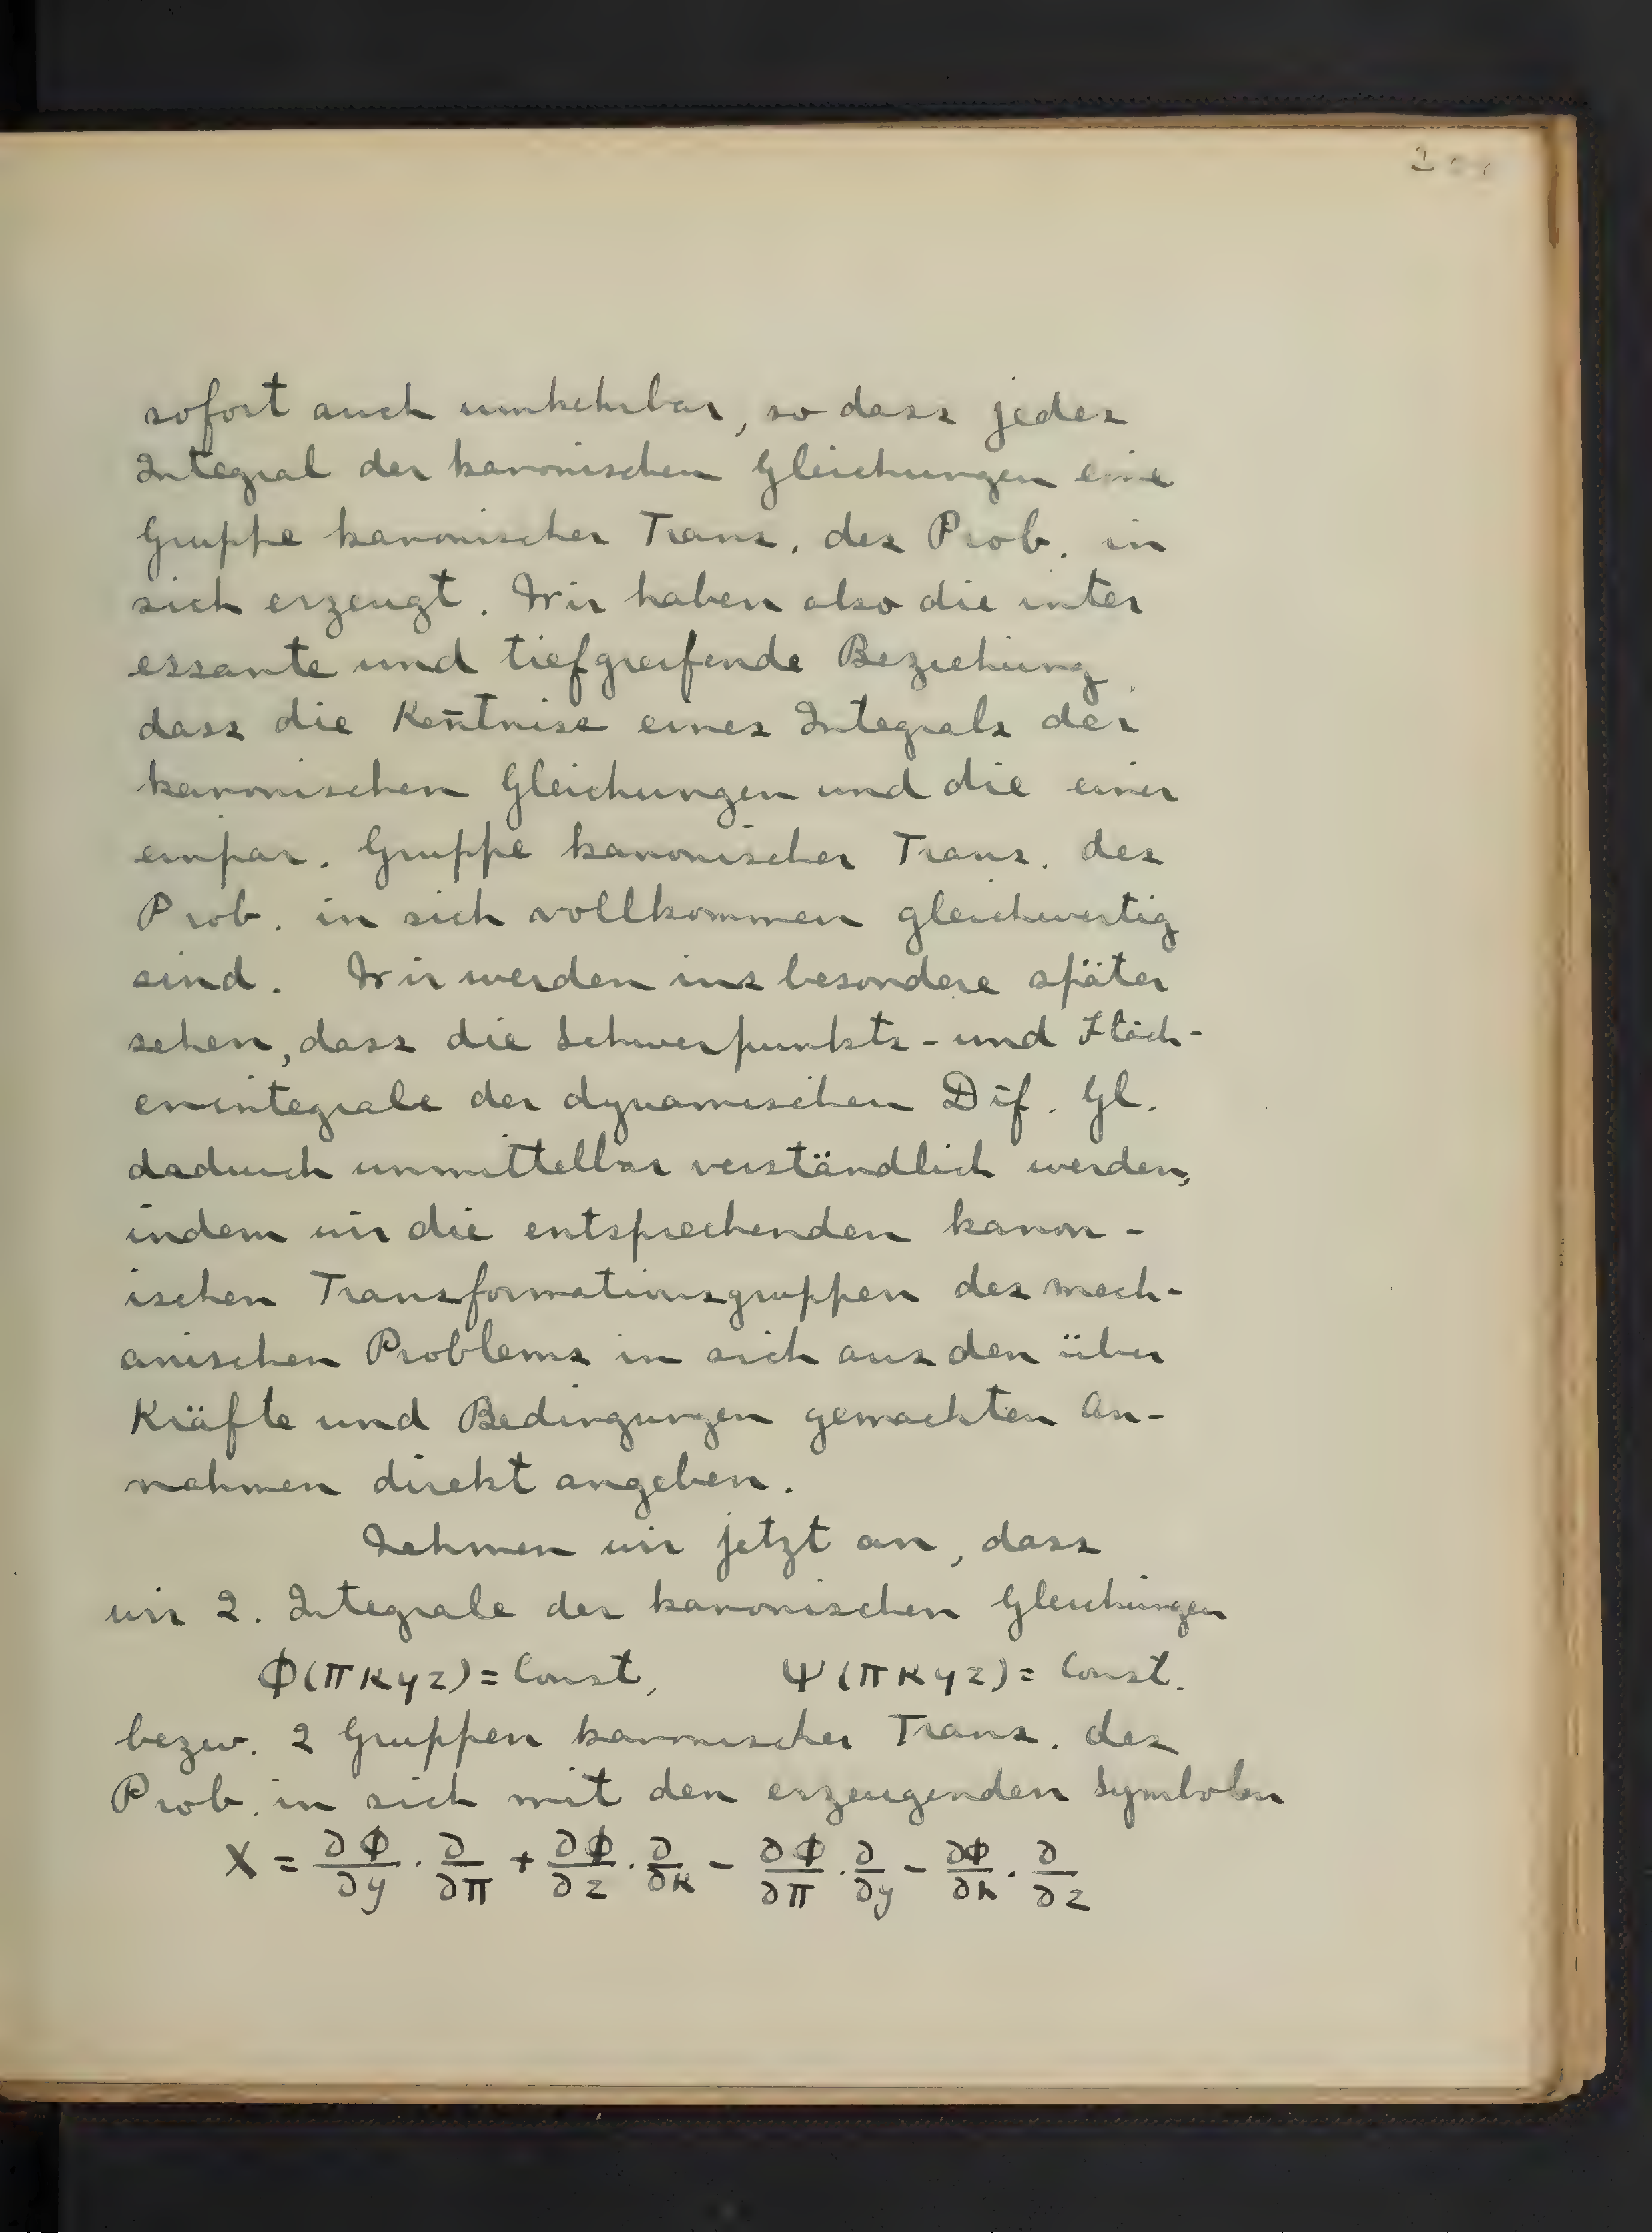 sofort auch umkehrbar, so dass jedes
Integral der kanonischen Gleichungen eine
Gruppe kanonischer Trans. des Prob. in
sich erzeugt. Wir haben also die inter
essante und tiefgreifende Beziehung,
dass die Ken̄tniss eines Integrals der
kanonischen Gleichungen und die einer
einpar. Gruppe kanonischer Trans. des
Prob. in sich vollkommen gleichwertig
sind. Wir werden ins besondere später
sehen, dass die Schwerpunkts- und Fläch-
enintegrale der dynamischen Dif. Gl.
dadurch unmittelbar verständlich werden,
indem wir die entsprechenden kanon-
ischen Transformationsgruppen des mech-
anischen Problems in sich aus den über
Kräfte und Bedingungen gemachten An-
nahmen direkt angeben.
Nehmen wir jetzt an, dass
wir 2. Integrale der kanonischen Gleichungen
Φ(π κ y z) = Const, Ψ(π κ y z) = Const.
bezw. 2 Gruppen kanonischer Trans. des
Prob. in sich mit den erzeugenden Symbolen
X = ∂Φ/∂y · ∂/∂π + ∂Φ/∂z · ∂/∂κ - ∂Φ/∂π · ∂/∂y - ∂Φ/∂κ · ∂/∂z